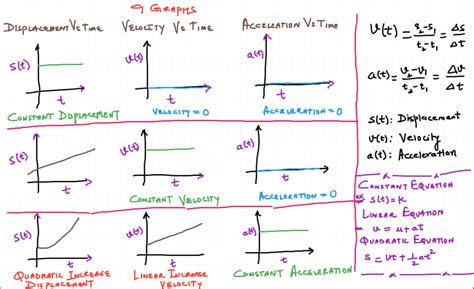 9 GRAPHS
DISPLACEMENT VS TIME
VELOCITY VS TIME
ACCELERATION VS TIME
s(t)
t
v(t)
t
a(t)
t
CONSTANT DISPLACEMENT
VELOCITY = 0
ACCELERATION = 0
s(t)
t
v(t)
t
a(t)
t
CONSTANT VELOCITY
ACCELERATION = 0
s(t)
t
v(t)
t
a(t)
t
QUADRATIC INCREASE
DISPLACEMENT
LINEAR INCREASE
VELOCITY
CONSTANT ACCELERATION
v(t) = s₂-s₁ / t₂-t₁ = Δs / Δt
a(t) = v₂-v₁ / t₂-t₁ = Δv / Δt
s(t): Displacement
v(t): Velocity
a(t): Acceleration
CONSTANT EQUATION
s(t) = K
LINEAR EQUATION
v = u + at
QUADRATIC EQUATION
s = ut + 1/2 at²